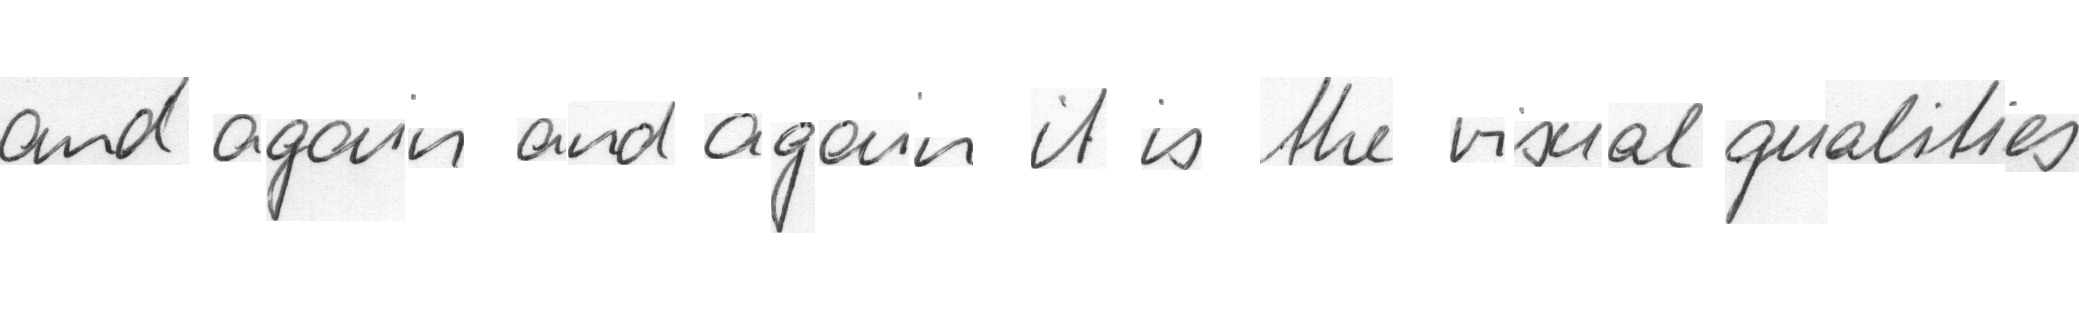 and again and again it is the visual qualities